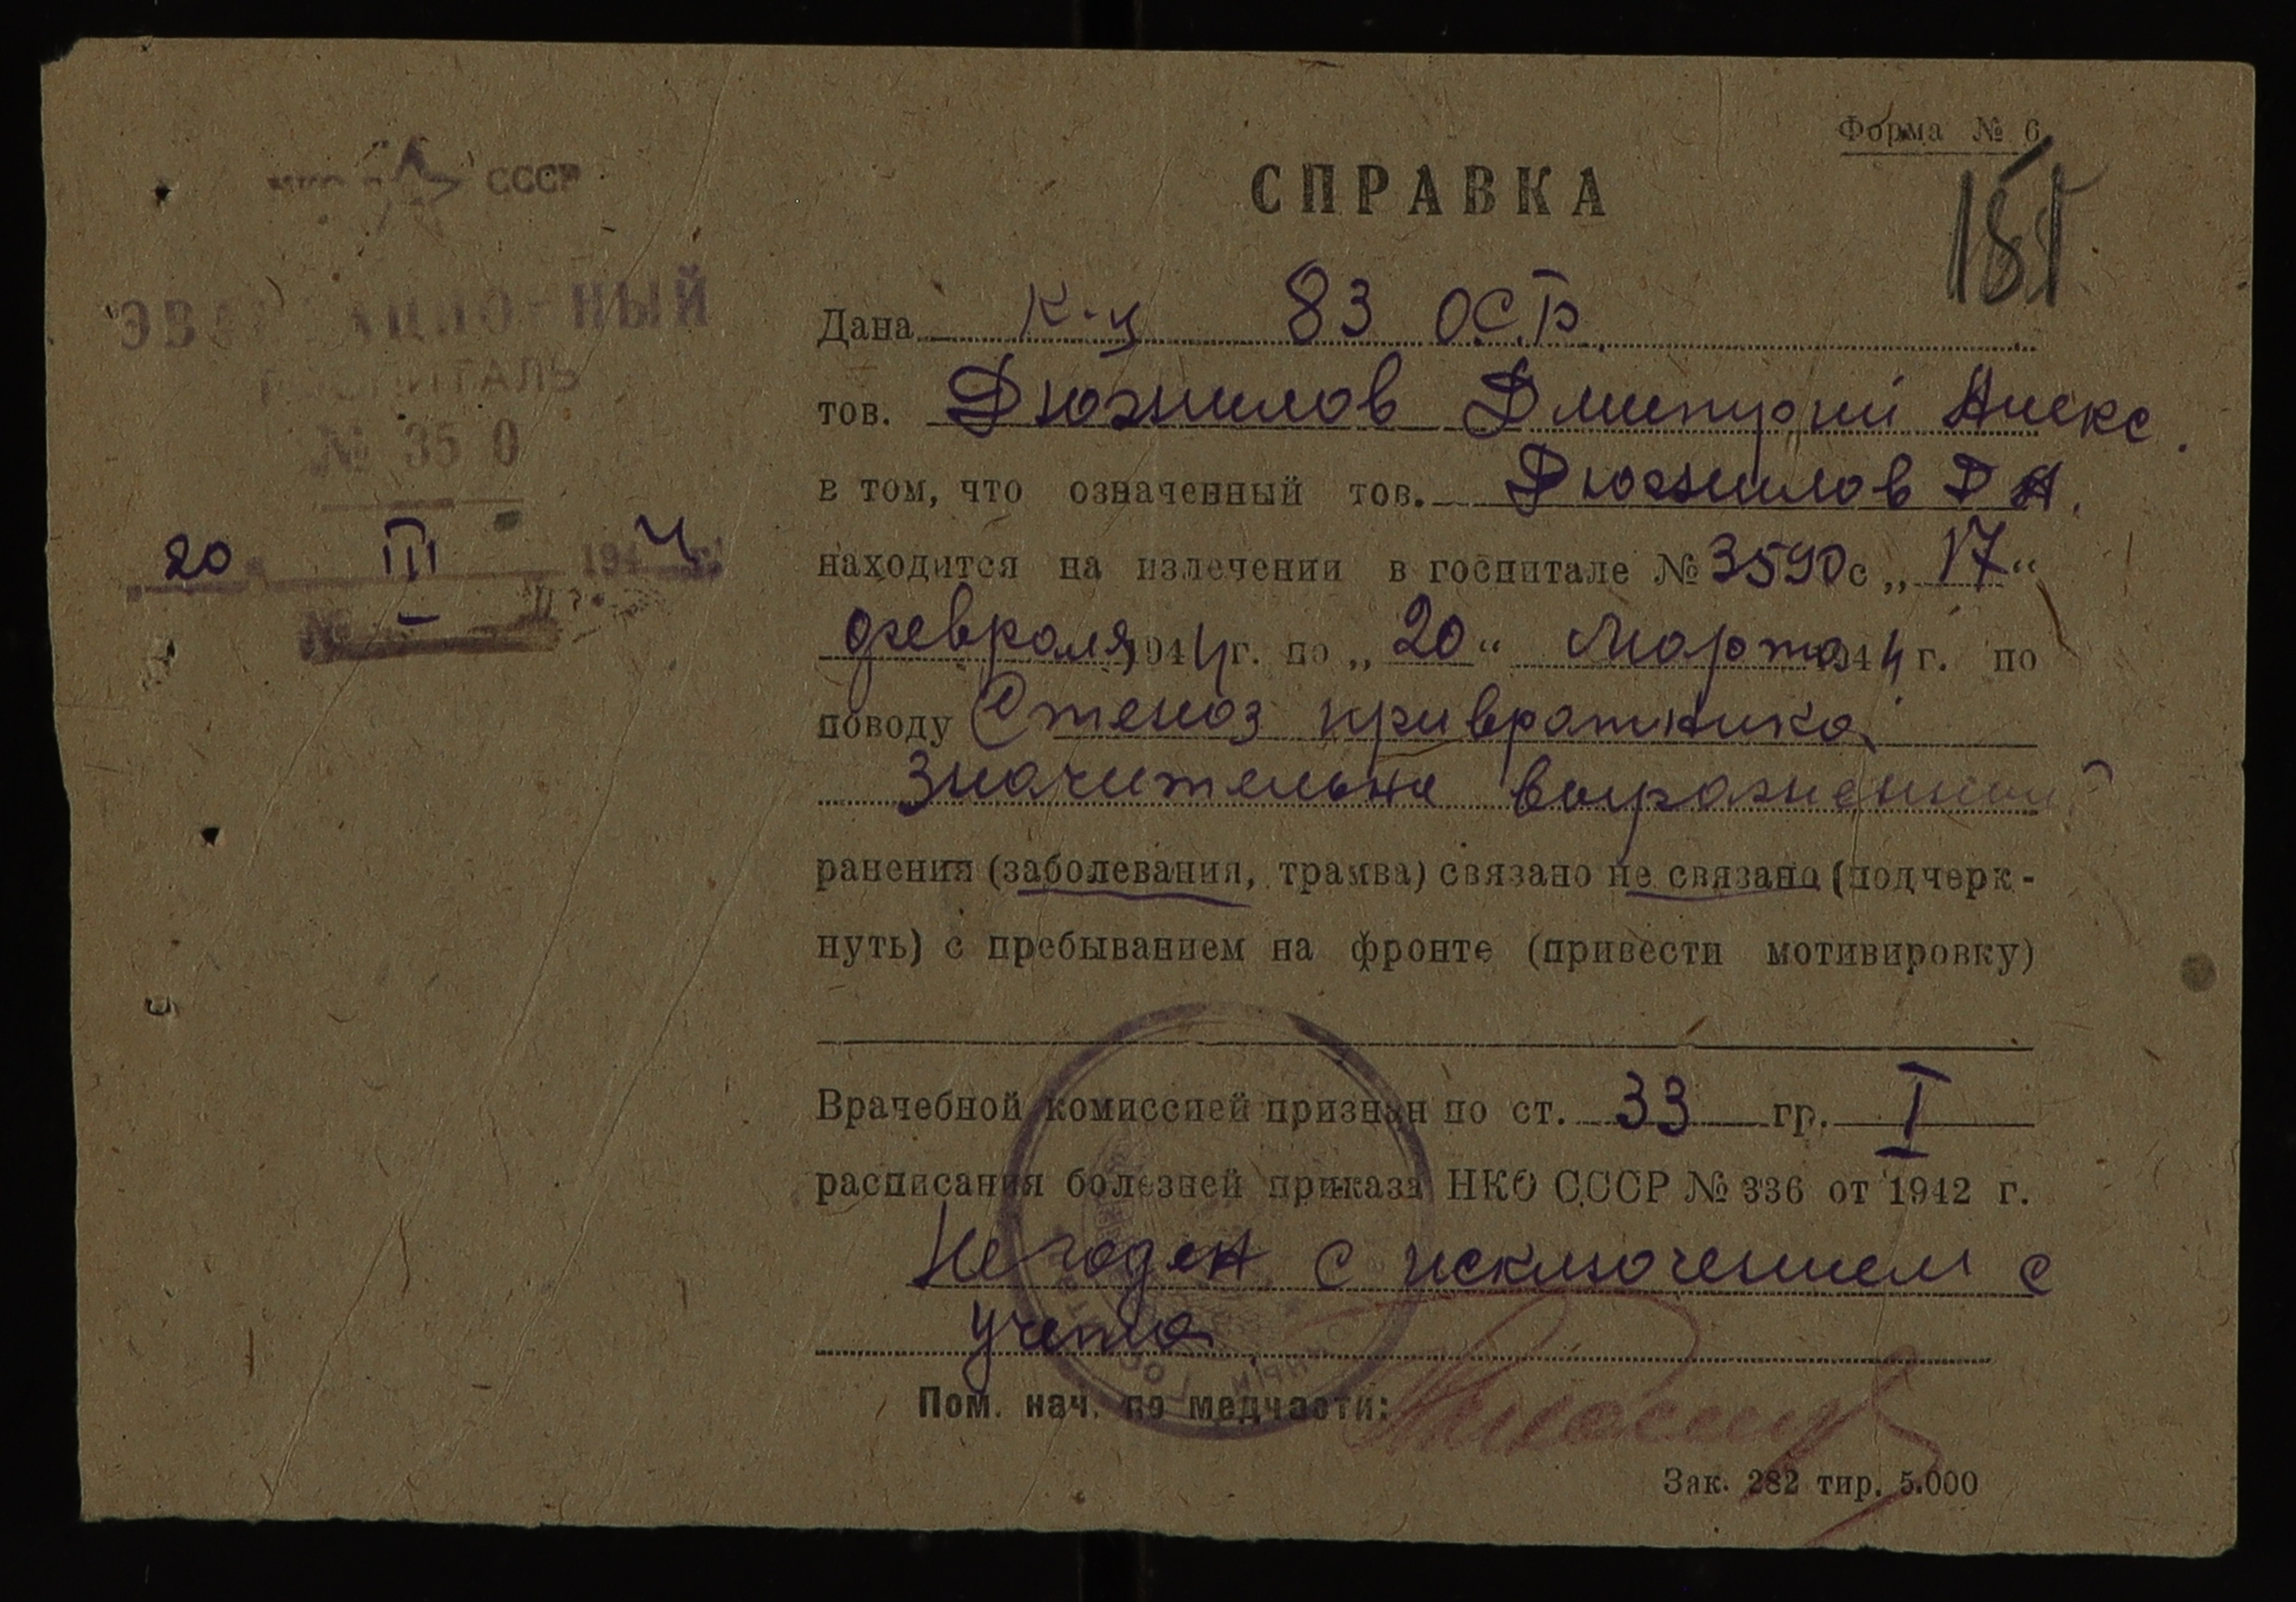 Форма № 6
СССР
СПРАВКА
151
ЭВАКУАЦИОННЫЙ
ГОСПИТАЛЬ
Дана к-ц 83 ОСР
тов. Дюжилов Дмитрий Алекс.
№ 35 0
в том, что означенный тов. Дюжилов Д А.
20 III 1944 г.
находится на излечении в госпитале № 3590 с „17“
№
февраля 1944 г. по „20“ Марта 1944 г. по
поводу Стеноз привратника
значительно выраженный
ранения (заболевания, трамва) связано не связано (подчерк-
нуть) с пребыванием на фронте (привести мотивировку)
Врачебной комиссией признан по ст. 33 гр. I
расписания болезней приказа НКО СССР № 336 от 1942 г.
Не годен с исключением с
учета
Пом. нач. по медчасти:
Зак. 282 тир. 5.000